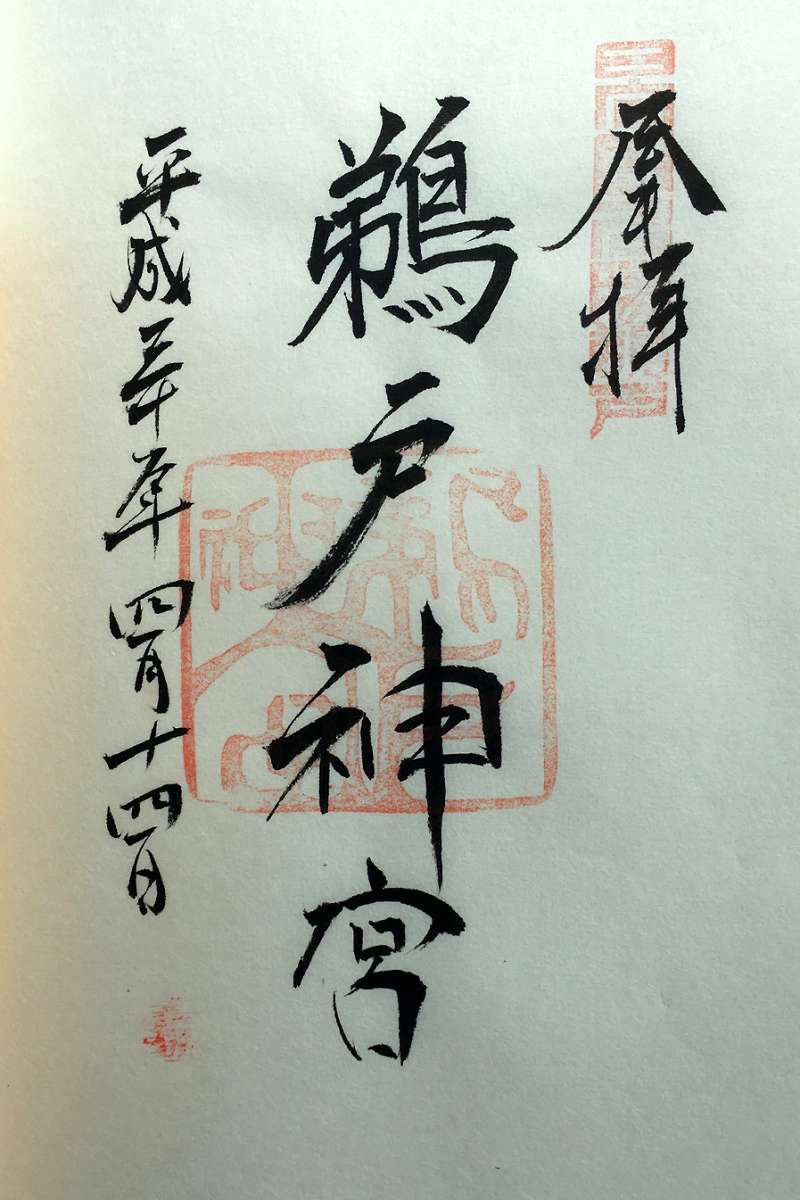 奉拝
鵜戸神宮
平成三十年四月十四日